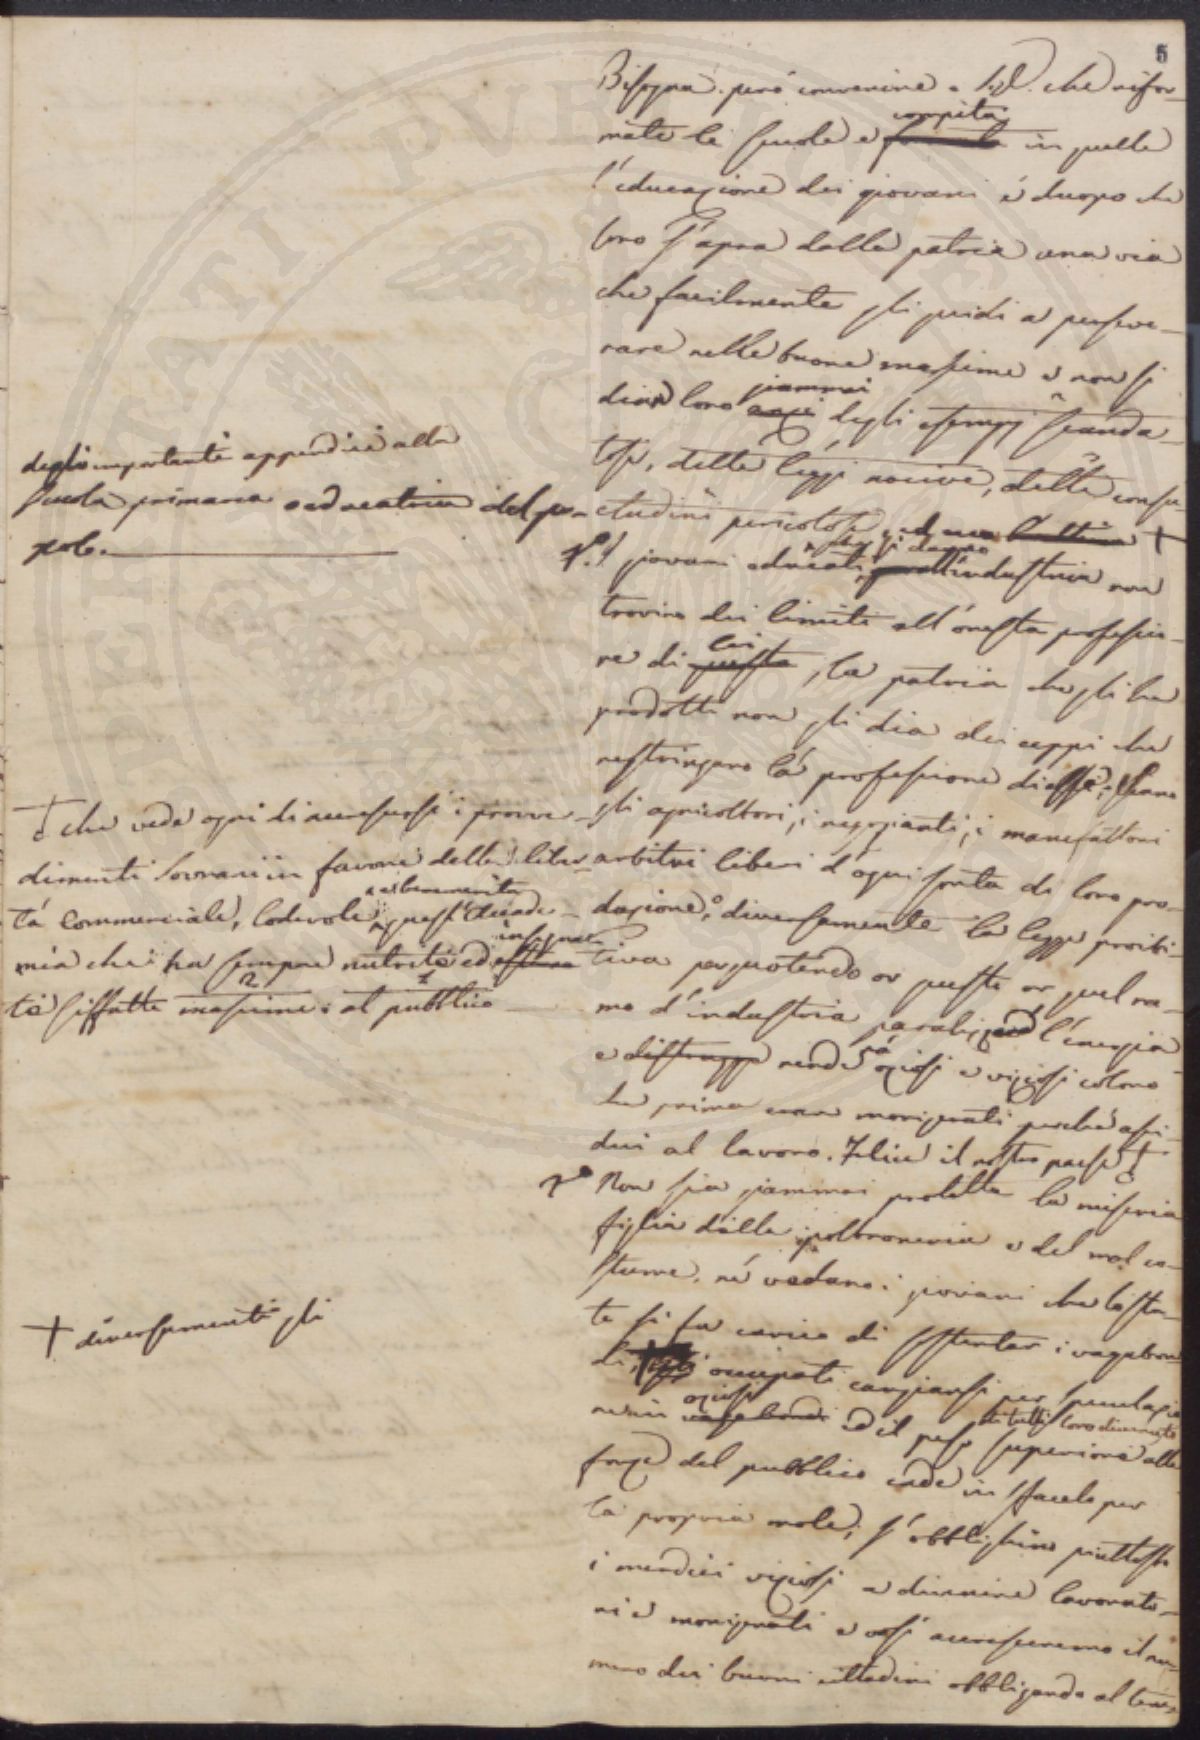 5
Bisogna però convenire che rifor-
compita
mate le scuole e in quelle
l'educazione dei giovani è duopo che
loro s'apra dalla patria una via
che facilmente gli guidi a perseve-
rare nelle buone massime e non si
giammai
diano loro degli esempj scanda-
losi, delle leggi nocive, delle consu-
etudini pericolose +
1º. I giovani educati, industria non
trovino dei limiti all'onesta professio-
lei
ne di questa, la patria che gli ha
prodotti non gli dia dei ceppi che
restringano la professione di essa; siano
gli agricoltori, i negozianti, i manefattori
arbitri liberi d'ogni sorta di loro pro-
duzione; diversamente la legge proibi-
tiva percuotendo or questo or quel ra-
mo d'industria paralizzerà l'energia
e distrugge renderà oziosi e viziosi coloro
che prima eran morigerati perché assi-
dui al lavoro. Felice il nostro paese +
2º Non sia giammai protetta la miseria
figlia della poltroneria e del mal co-
stume, né vedano i giovani che lo sta-
to si fa carico di sostentar i vagabon-
di, occupati cangiarsi per speculazio-
oziosi
di tutti loro divenuto
ne in vagabondi ed il peso superiore alle
forze del pubblico cade in sfacelo per
la propria mole; s'obblighino piuttosto
i mendici viziosi a divenire lavorato-
ri e morigerati e così accresceremo il nu-
mero dei buoni cittadini obbligando al tem-
degli importanti appendici alla
scuola primaria educatrice del po-
polo.
+ che vede ogni dì accrescersi i provve-
dimenti Sovrani in favore della liber-
tà commerciale, lodevole
e benemerita
quest'Accade-
mia che ha sempre nutrito ed
insegna-
te siffatte massime al pubblico
+ diversamente gli